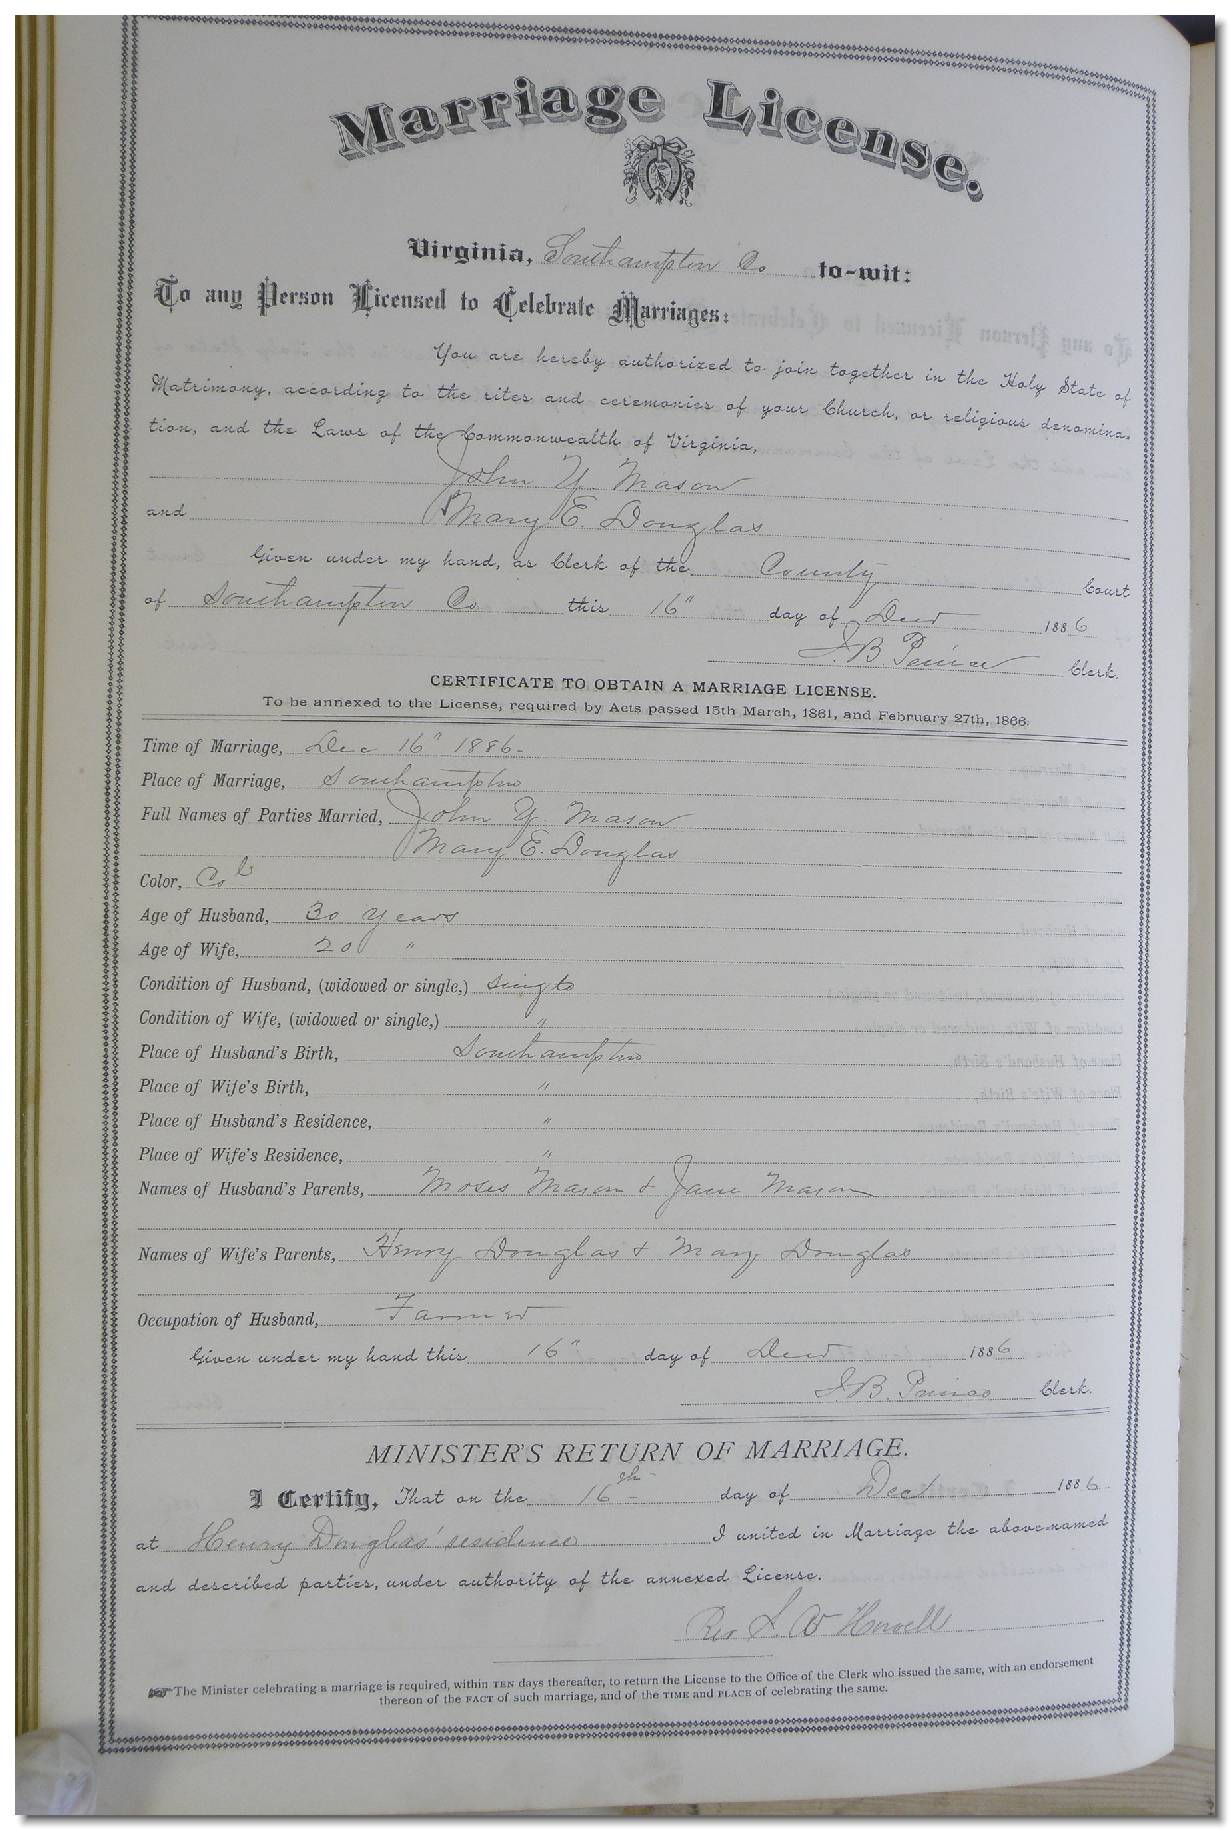 Marriage License.
Virginia, Southampton Co to-wit:
To any Person Licensed to Celebrate Marriages:
You are hereby authorized to join together in the Holy State of
Matrimony, according to the rites and ceremonies of your Church, or religious denomina-
tion, and the Laws of the Commonwealth of Virginia,
John Y Mason
and Mary E. Douglas
Given under my hand, as Clerk of the County Court
of Southampton Co this 16" day of Decr 1886
J. B. Prince Clerk.
CERTIFICATE TO OBTAIN A MARRIAGE LICENSE.
To be annexed to the License, required by Acts passed 15th March, 1861, and February 27th, 1866.
Time of Marriage, Dec 16" 1886-
Place of Marriage, Southampton
Full Names of Parties Married, John Y. Mason
Mary E. Douglas
Color, Col
Age of Husband, 30 years
Age of Wife, 20 "
Condition of Husband, (widowed or single,) Single
Condition of Wife, (widowed or single,) "
Place of Husband's Birth, Southampton
Place of Wife's Birth, "
Place of Husband's Residence, "
Place of Wife's Residence, "
Names of Husband's Parents, Moses Mason & Jane Mason
Names of Wife's Parents, Henry Douglas & Mary Douglas
Occupation of Husband, Farmer
Given under my hand this 16" day of Decr 1886
J. B. Prince Clerk.
MINISTER'S RETURN OF MARRIAGE.
I Certify, That on the 16th day of Dec 1886
at Henry Douglas' residence I united in Marriage the above-named
and described parties, under authority of the annexed License.
Rev S. W Howell
The Minister celebrating a marriage is required, within TEN days thereafter, to return the License to the Office of the Clerk who issued the same, with an endorsement
thereon of the FACT of such marriage, and of the TIME and PLACE of celebrating the same.